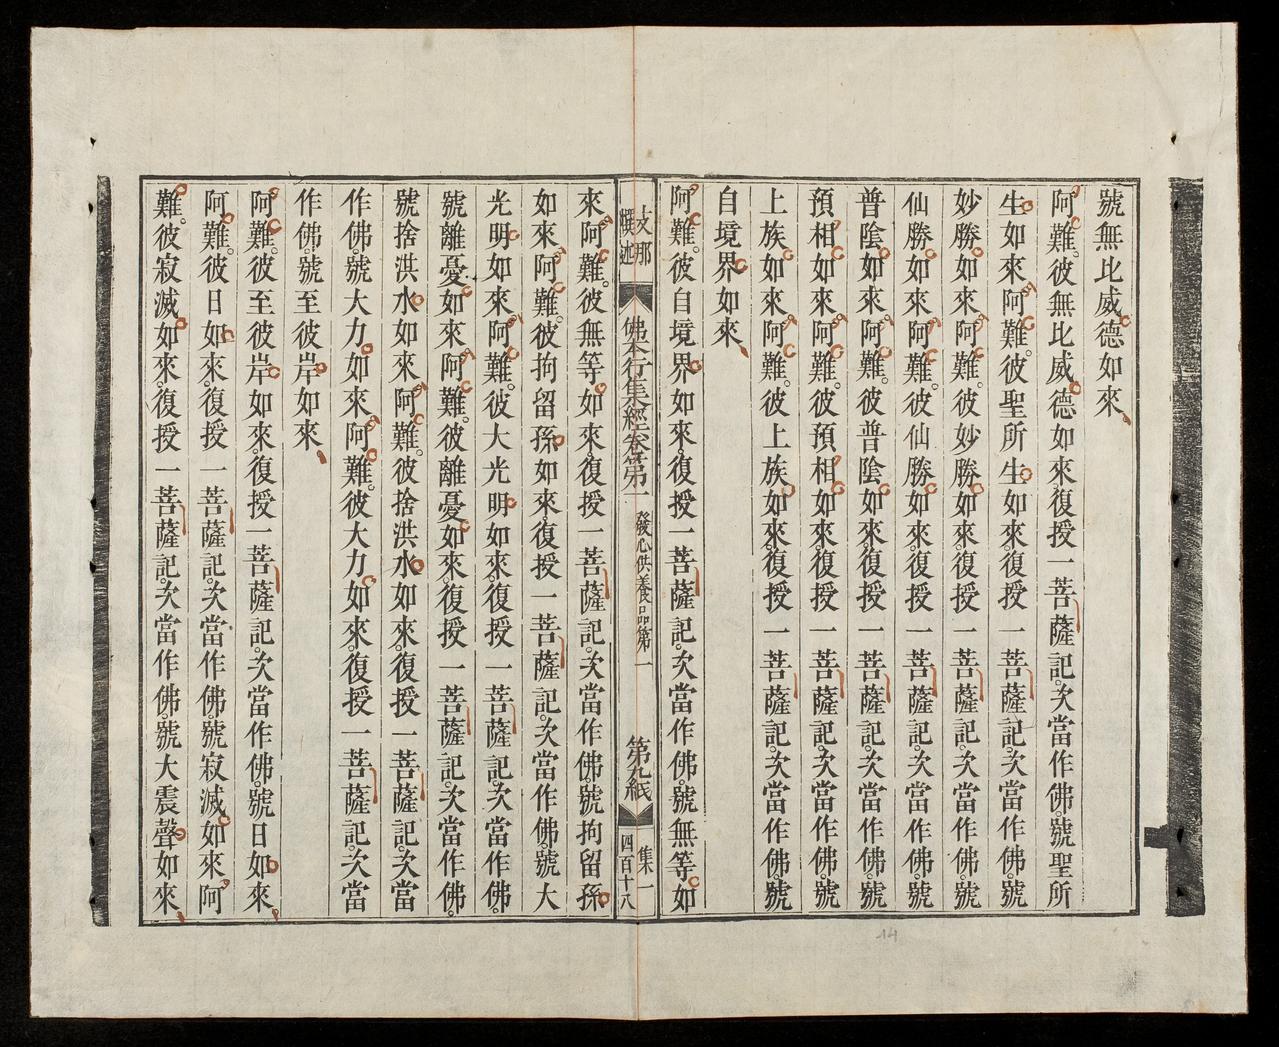 號無比威德如來
阿難。彼無比威德如來。復授一菩薩記。次當作佛。號聖所
生如來。阿難。彼聖所生如來。復授一菩薩記。次當作佛。號
妙勝如來。阿難。彼妙勝如來。復授一菩薩記。次當作佛。號
仙勝如來。阿難。彼仙勝如來。復授一菩薩記。次當作佛。號
普陰如來。阿難。彼普陰如來。復授一菩薩記。次當作佛。號
預相如來。阿難。彼預相如來。復授一菩薩記。次當作佛。號
上族如來。阿難。彼上族如來。復授一菩薩記。次當作佛。號
自境界如來
阿難。彼自境界如來。復授一菩薩記。次當作佛。號無等如
支那
撰述
佛本行集經卷第一
發心供養品第一
第九紙
集一
四百十八
來。阿難。彼無等如來。復授一菩薩記。次當作佛。號拘留孫
如來。阿難。彼拘留孫如來。復授一菩薩記。次當作佛。號大
光明如來。阿難。彼大光明如來。復授一菩薩記。次當作佛
號離憂如來。阿難。彼離憂如來。復授一菩薩記。次當作佛。
號捨洪水如來。阿難。彼捨洪水如來。復授一菩薩記。次當
作佛。號大力如來。阿難。彼大力如來。復授一菩薩記。次當
作佛。號至彼岸如來
阿難。彼至彼岸如來。復授一菩薩記。次當作佛。號日如來
阿難。彼日如來。復授一菩薩記。次當作佛。號寂滅如來。阿
難。彼寂滅如來。復授一菩薩記。次當作佛。號大震聲如來
14